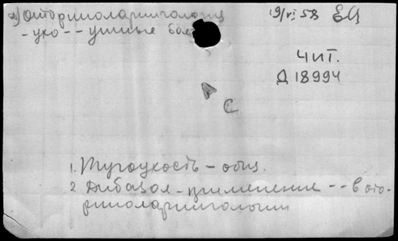 а) оториноларингология 19/VI 58
- ухо -- ушные бол
чит.
Д 18994
С
1. Тугоухость – общ.
2. Дибазол – применение -- в ото-
риноларингологии